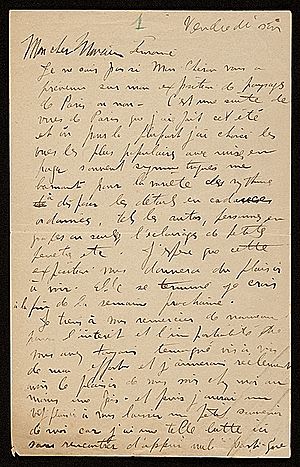 1
Vendredi soir
Mon cher Monsieur
Je ne sais pas si Mon Cheron vous a
prévenu sur mon exposition de paysages
de Paris ou non. C'est une suite de
vues de Paris que j'ai fait cet été
et où pour la plupart j'ai choisi les
vues les plus populaires avec mise en
page souvent
pour la des rythmes
dis pour les détails en cadences
ordonnées, tels les autos, personnes en
ou seuls l'éclairage de petites
fenêtres etc. J'espère que cette
exposition vous donnera du plaisir
à voir. Elle se termine je crois
à la fin de la semaine prochaine.
Je tiens à vous remercier de nouveau
pour l'intérêt et l'impartialité que
vous avez toujours témoigné vis à vis
de mon effort et j'aimerais réellement
avoir le plaisir de vous voir chez moi au
moins une fois et puis j'aurai un
vif plaisir à vous laisser un petit souvenir
de moi car j'ai une telle lutte ici
sans rencontrer d'appui nulle part que